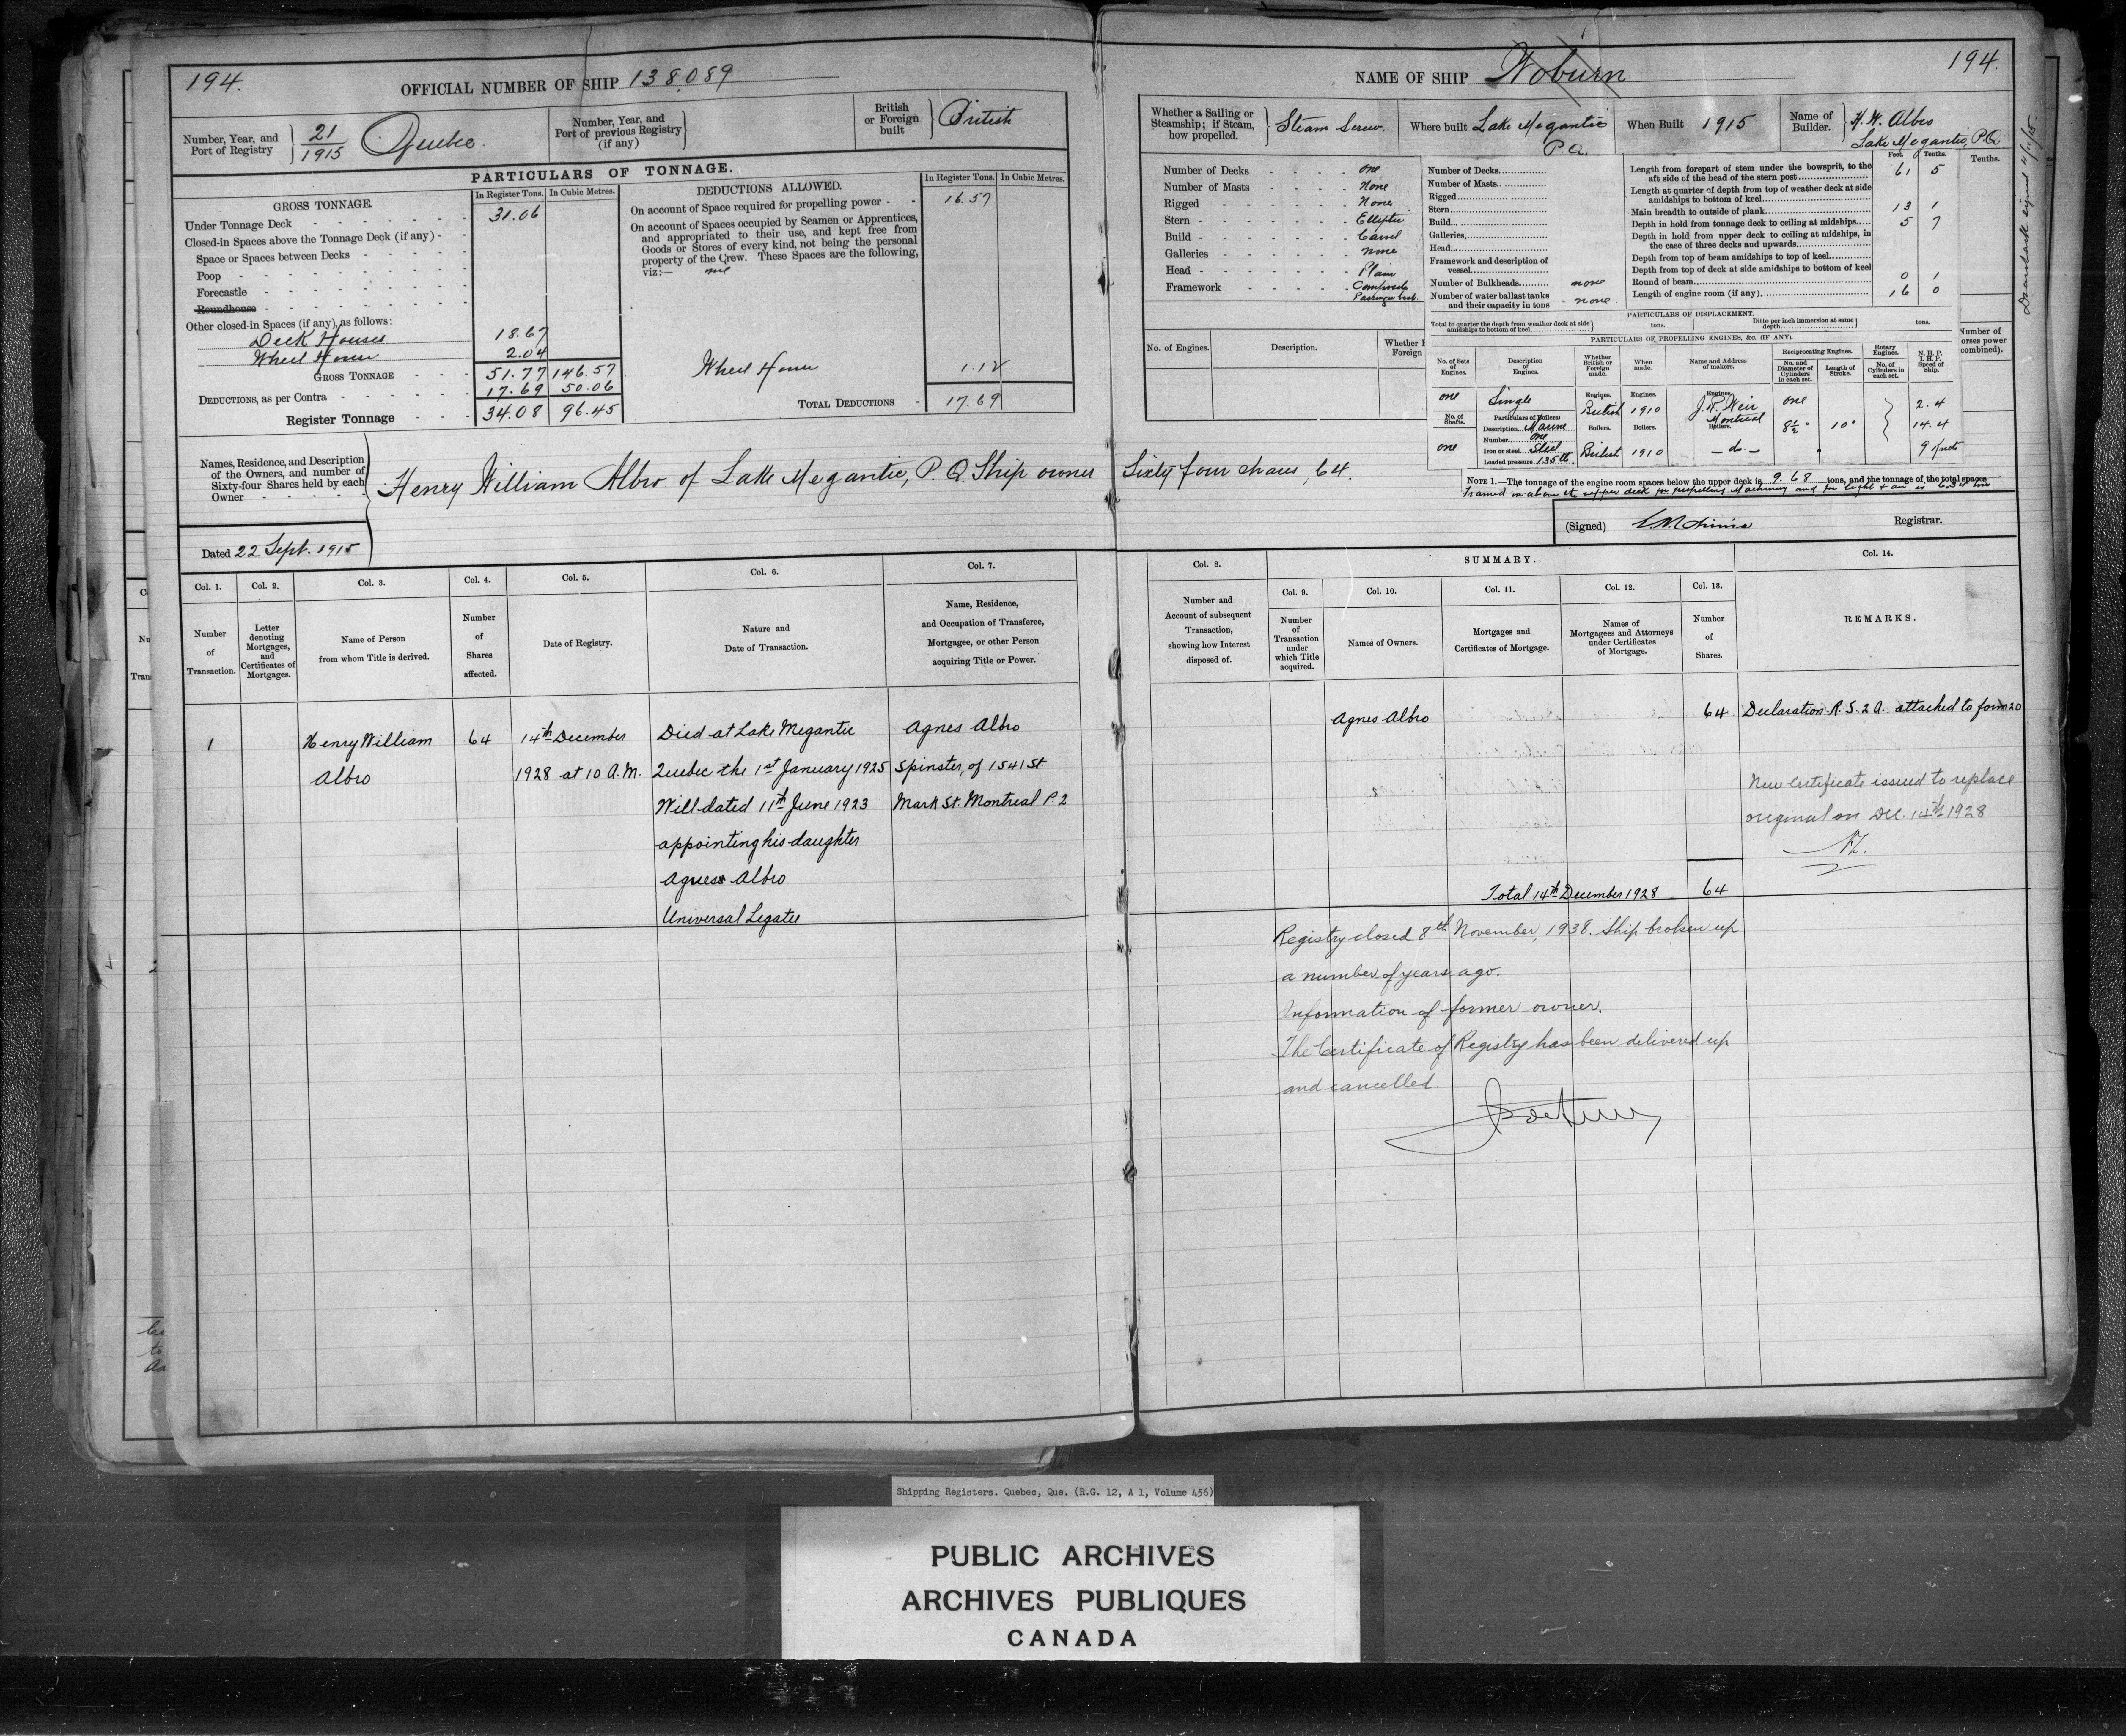 194.
OFFICIAL NUMBER OF SHIP 138,089
Number, Year, and Port of Registry
21/1915 Quebec.
Number, Year, and Port of previous Registry (if any)
British or Foreign built
British
PARTICULARS OF TONNAGE.
GROSS TONNAGE.
In Register Tons.
In Cubic Metres.
Under Tonnage Deck 31.06
Closed-in Spaces above the Tonnage Deck (if any)
Space or Spaces between Decks
Poop
Forecastle
Roundhouse
Other closed-in Spaces (if any), as follows:
Deck Houses 18.67
Wheel House 2.04
GROSS TONNAGE 51.77 146.57
DEDUCTIONS, as per Contra 17.69 50.06
Register Tonnage 34.08 96.45
DEDUCTIONS ALLOWED.
In Register Tons.
In Cubic Metres.
On account of Space required for propelling power 16.57
On account of Spaces occupied by Seamen or Apprentices,
and appropriated to their use, and kept free from
Goods or Stores of every kind, not being the personal
property of the Crew. These Spaces are the following,
viz:— nil
Wheel House 1.12
TOTAL DEDUCTIONS 17.69
Names, Residence, and Description
of the Owners, and number of
Sixty-four Shares held by each
Owner
Henry William Albro of Lake Megantic, P.Q. Ship owner Sixty four shares, 64.
Dated 22 Sept. 1915
Col. 1.
Number of Transaction.
Col. 2.
Letter denoting Mortgages, and Certificates of Mortgages.
Col. 3.
Name of Person from whom Title is derived.
Col. 4.
Number of Shares affected.
Col. 5.
Date of Registry.
Col. 6.
Nature and Date of Transaction.
Col. 7.
Name, Residence, and Occupation of Transferee, Mortgagee, or other Person acquiring Title or Power.
1
Henry William
Albro
64
14th December
1928 at 10 A.M.
Died at Lake Megantic
Quebec the 1st January 1925
Will dated 11th June 1923
appointing his daughter
Agness Albro
Universal Legatee
Agnes Albro
Spinster, of 1541 St
Mark St. Montreal P2
NAME OF SHIP Woburn
194.
Whether a Sailing or Steamship; if Steam, how propelled.
Steam Screw.
Where built Lake Megantic P.Q.
When Built 1915
Name of Builder.
H. W. Albro
Lake Megantic, P.Q.
Number of Decks one
Number of Masts None
Rigged None
Stern Elliptic
Build Carvel
Galleries None
Head Plain
Framework Composite
Passenger boat.
No. of Engines.
Description.
Number of Decks
Number of Masts
Rigged
Stern
Build
Galleries
Head
Framework and description of vessel
Number of Bulkheads none
Number of water ballast tanks and their capacity in tons none
Feet. Tenths.
Length from forepart of stem under the bowsprit, to the aft side of the head of the stern post 61 5
Length at quarter of depth from top of weather deck at side amidships to bottom of keel
Main breadth to outside of plank 13 1
Depth in hold from tonnage deck to ceiling at midships 5 7
Depth in hold from upper deck to ceiling at midships, in the case of three decks and upwards
Depth from top of beam amidships to top of keel
Depth from top of deck at side amidships to bottom of keel
Round of beam 0 1
Length of engine room (if any) 16 0
Tenths.
PARTICULARS OF DISPLACEMENT.
Total to quarter the depth from weather deck at side amidships to bottom of keel tons.
Ditto per inch immersion at same depth tons.
PARTICULARS OF PROPELLING ENGINES, &c. (IF ANY).
No. of Sets of Engines.
Description of Engines.
Whether British or Foreign made.
When made.
Name and Address of makers.
Reciprocating Engines.
No. and Diameter of Cylinders in each set.
Length of Stroke.
Rotary Engines.
No. of Cylinders in each set.
N. H. P.
I. H. P.
Speed of Ship.
one
Single
Engines. British
Engines. 1910
Engines. J. W. Weir
Montreal
one
8½"
10"
2.4
14.4
9 knots
No. of Shafts.
one
Particulars of Boilers:
Description Marine
Number One
Iron or steel Steel
Loaded pressure 135 lb
Boilers. British
Boilers. 1910
Boilers. — do —
NOTE 1.—The tonnage of the engine room spaces below the upper deck is 9.68 tons, and the tonnage of the total spaces
framed in above the upper deck for propelling Machinery and for light & air is 6.34 tons
(Signed)
Registrar.
Col. 8.
Number and Account of subsequent Transaction, showing how Interest disposed of.
SUMMARY.
Col. 9.
Number of Transaction under which Title acquired.
Col. 10.
Names of Owners.
Col. 11.
Mortgages and Certificates of Mortgage.
Col. 12.
Names of Mortgagees and Attorneys under Certificates of Mortgage.
Col. 13.
Number of Shares.
Col. 14.
REMARKS.
Agnes Albro
64
Declaration R.S.2A. attached to form 20
New Certificate issued to replace
original on Dec. 14th 1928
Total 14th December 1928 64
Registry closed 8th November, 1938. Ship broken up
a number of years ago.
Information of former owner.
The Certificate of Registry has been delivered up
and cancelled.
Shipping Registers. Quebec, Que. (R.G. 12, A 1, Volume 456)
PUBLIC ARCHIVES
ARCHIVES PUBLIQUES
CANADA